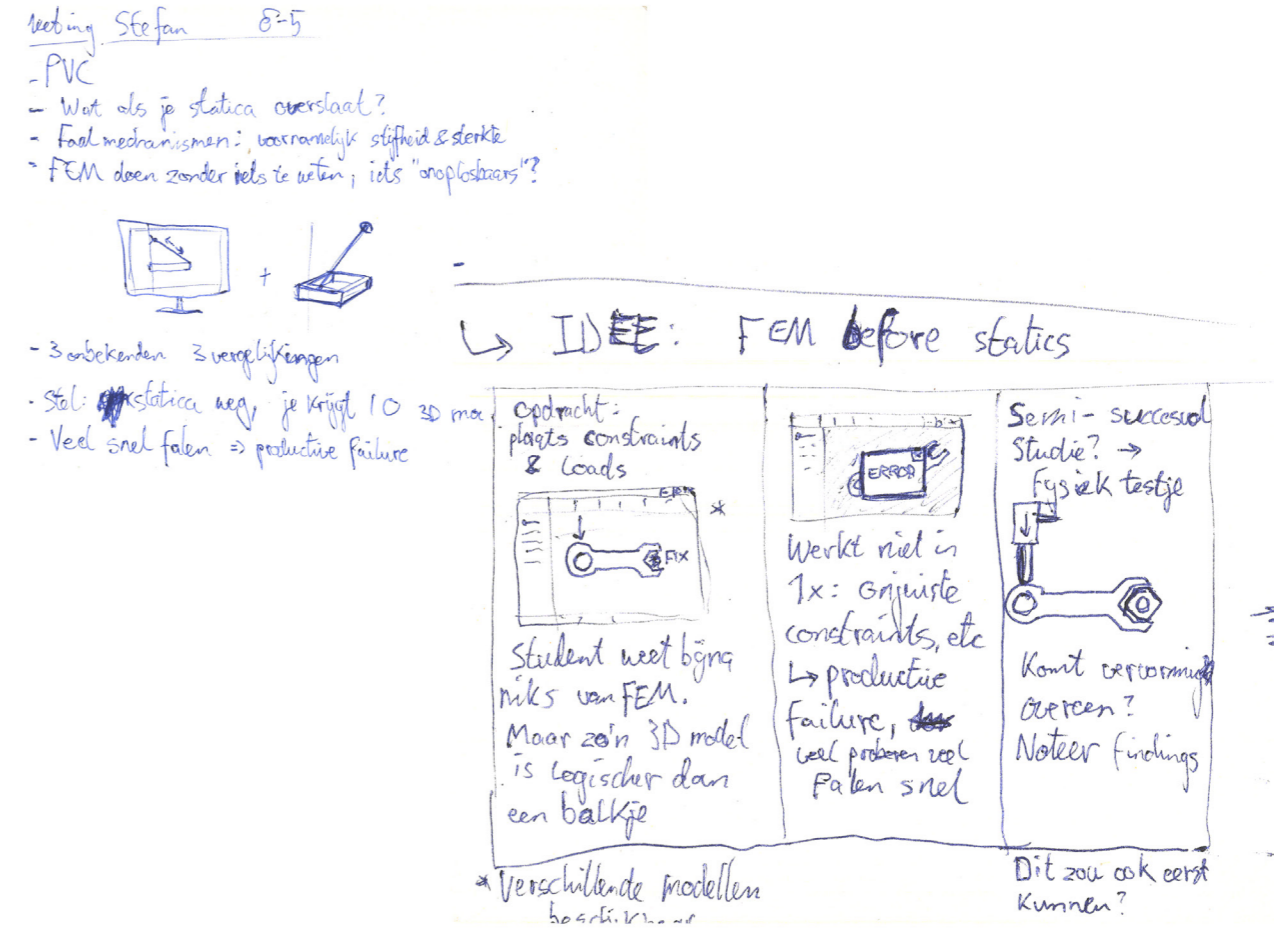 Meeting Stefan 8-5
- PVC
- Wat als je statica overslaat?
- Faalmechanismen: voornamelijk stijfheid & sterkte
- FEM doen zonder iets te weten, iets "onoplosbaars"?
+
- 3 onbekenden 3 vergelijkingen
- Stel: statica weg, je krijgt 10 3D
- Veel snel falen => productive failure
-
↳ IDEE: FEM before statics
Opdracht:
plaats constraints
& Loads
*
FIX
Student weet bijna
niks van FEM.
Maar zo'n 3D model
is logischer dan
een balkje
* Verschillende modellen
beschikbaar
ERROR
Werkt niet in
1x: onjuiste
constraints, etc
↳ productive
failure,
veel proberen veel
Falen snel
Semi-succesvol
Studie? →
Fysiek testje
Komt vervorming
overeen?
Noteer findings
Dit zou ook eerst
kunnen?